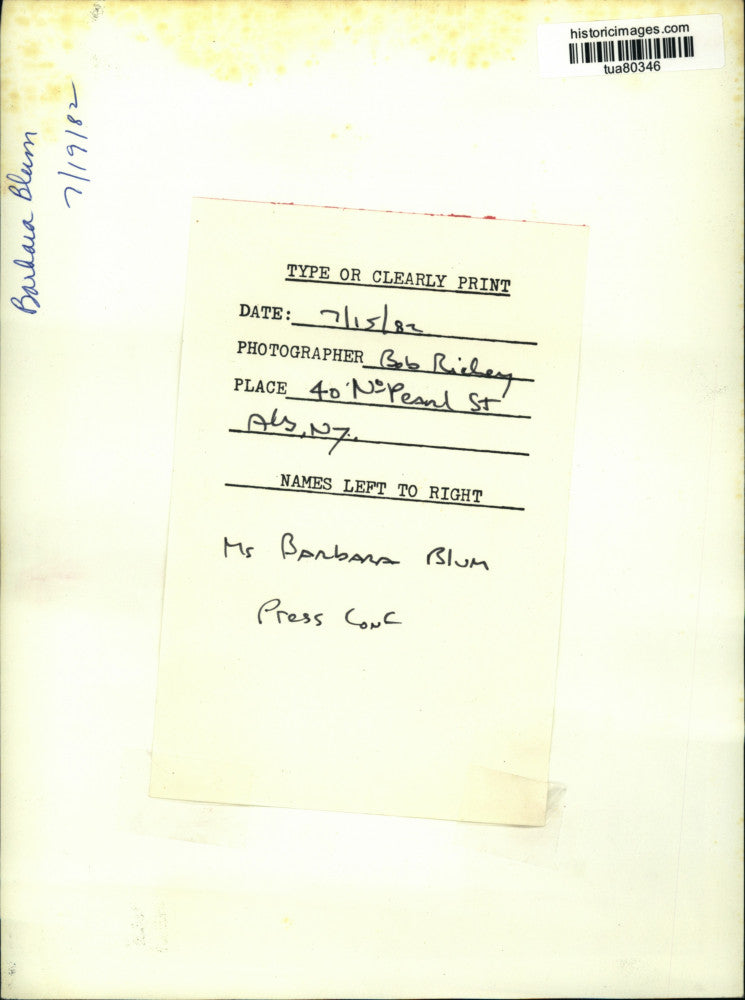 historicimages.com
tua80346
Barbara Blum
7/19/82
TYPE OR CLEARLY PRINT
DATE: 7/15/82
PHOTOGRAPHER Bob Richey
PLACE 40 No Pearl St
Alb, NY.
NAMES LEFT TO RIGHT
Ms Barbara Blum
Press Conf